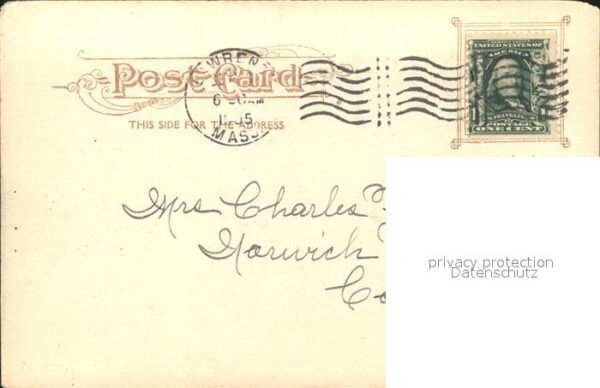 Post Card
THIS SIDE FOR THE ADDRESS
MASS.
UNITED STATES OF AMERICA
FRANKLIN
POSTAGE
ONE CENT
Mrs Charles
Norwich
privacy protection
Datenschutz